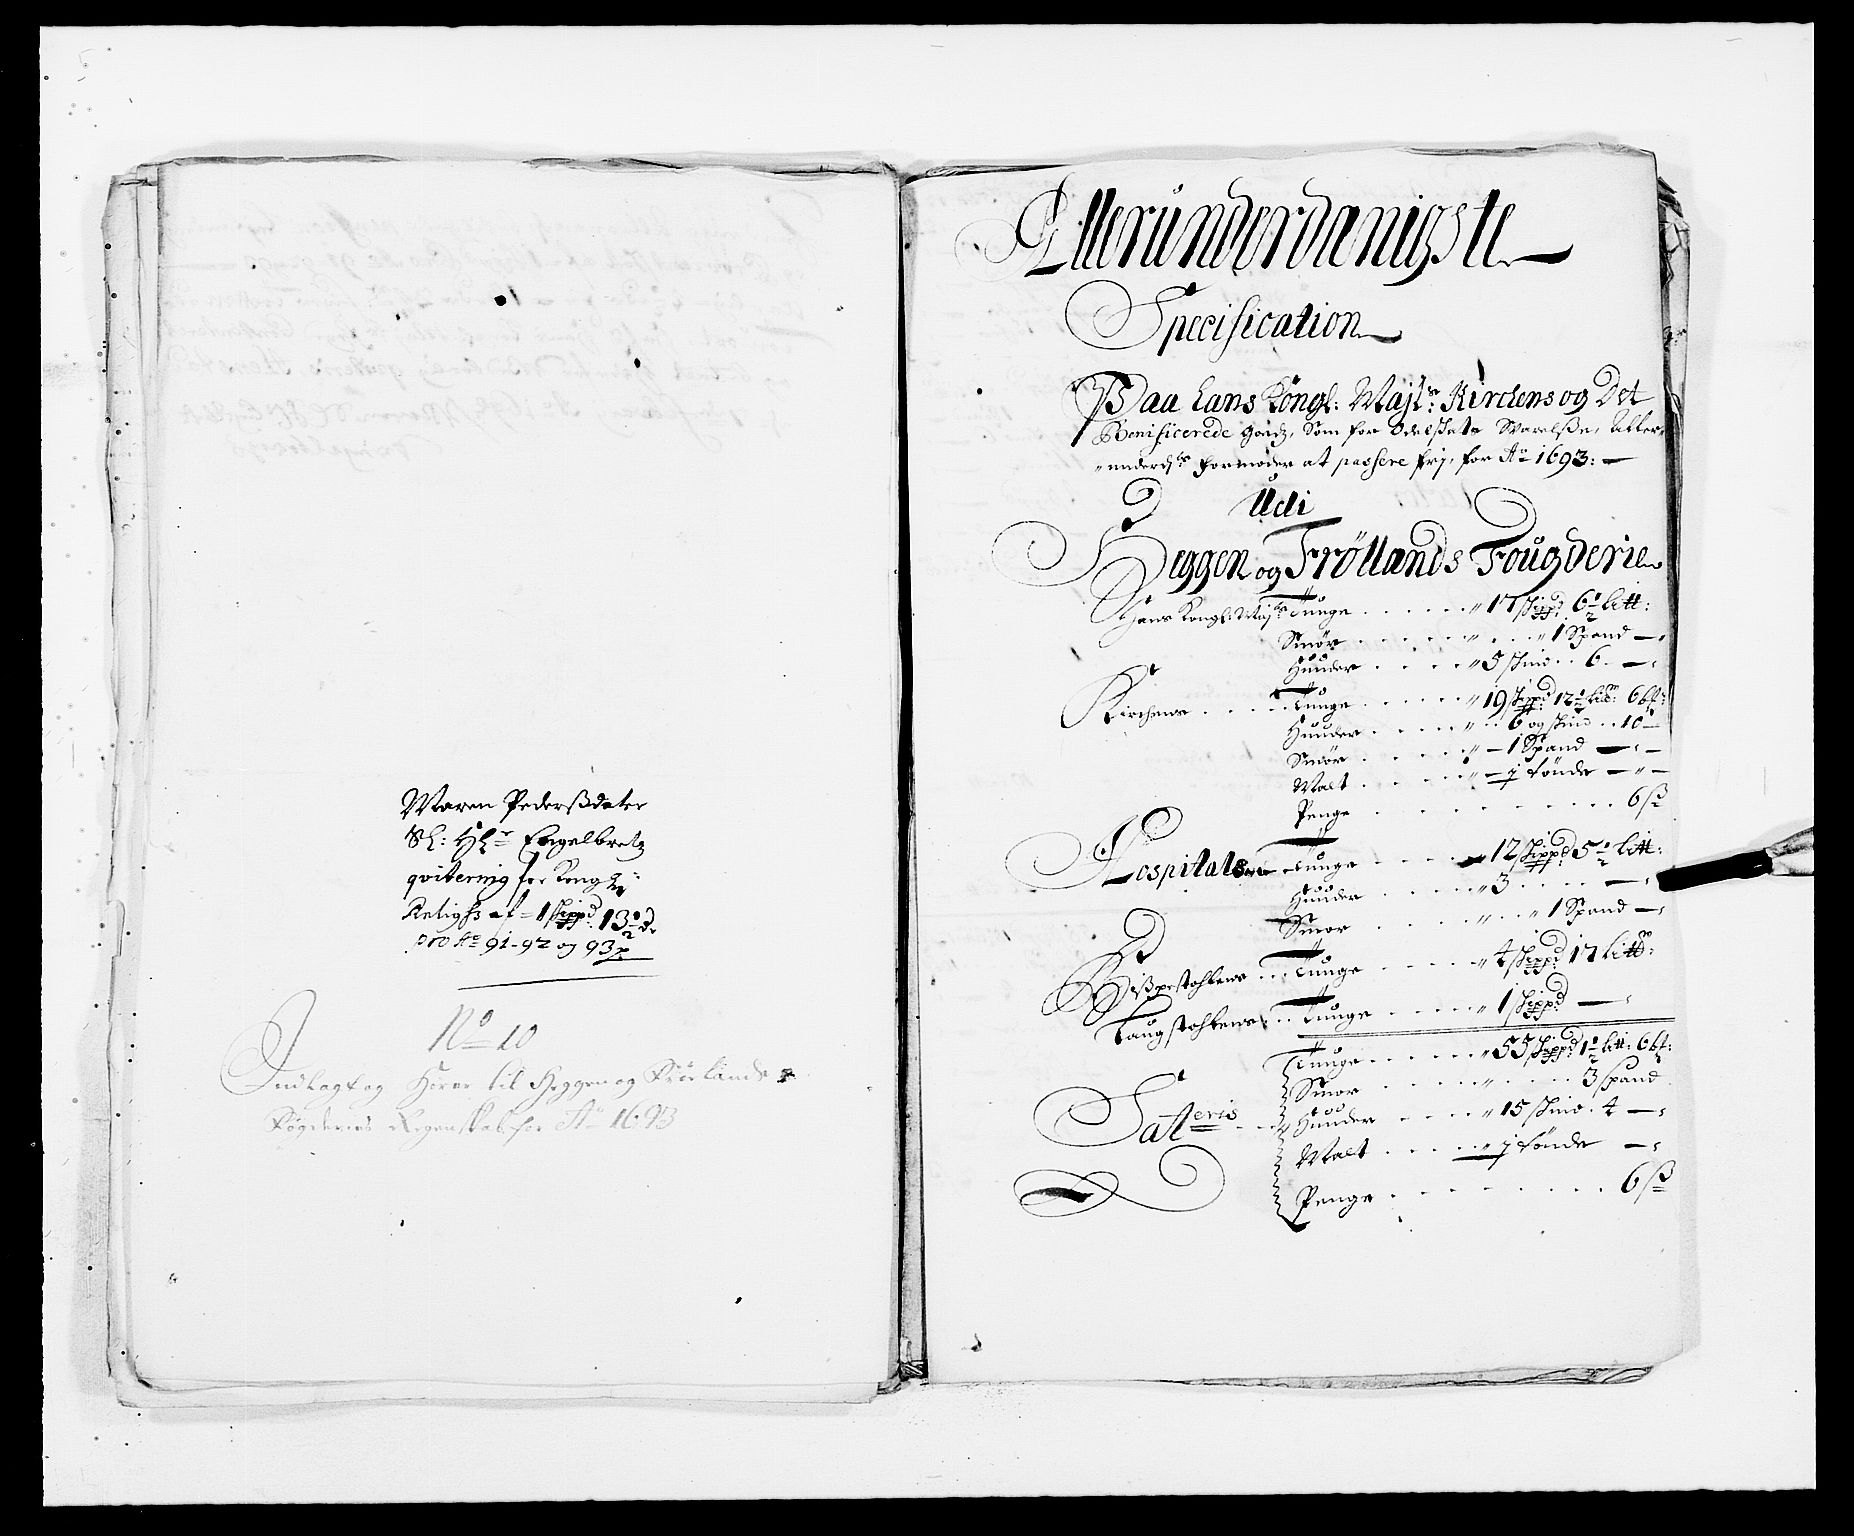 Maren Pedersdater
Sl: Hr: Engelbretz
qvitering for
af 1 Skippd 13½
pro Ao 91-92 og 93
No 10
Indlagt og Hører til Heggen og Frølands
Fogderies Regenskab for Ao 1693
Allerunderdanigste
Specification
Paa Hans Kongl: Maj:ts Kirchens og Det
Benificerede goedz, Som for Odelskats Svarelse, Aller-
underd:gst formoder at passere frj, for Ao 1693:
Udi
Heggen og Frøllands Fougderie
Hans Kongl: Maj:ts Tunge . . . . . . " 17 skippd 6½ litt:
Smør . . . . " . . " 1 Spand
Huuder . . . . " 5 skind . . 6
Kirchens . . . . Tunge . . . . . " 19 skippd 12½ lib: 6 bf:
Huuder . . . . " . . 6 og skind . . 10
Smør . . . . . " 1 Spand
Malt . . . . . " ½ tønde
Penge . . . . . . . . . . 6 ß
Hospitalens Tunge . . . . 12 skippd 5½ litt:
Huuder . . . . . " 3 . . . .
Smør . . . . " . . " 1 Spand
Bispestohlens . . . Tunge . . . . . " 4 skippd 17 litt:
Laugstohlens . . Tunge . . . . . " 1 skippd
Tunge . . . . . . " 55 skippd 1½ litt: 6 bf:
Smør . . . . . " . . . . 3 spand
Lateris . . . Huuder . . . . " 15 skind . 4
Malt . . . . . " ½ tønde
Penge . . . . . . . . . . 6 ß